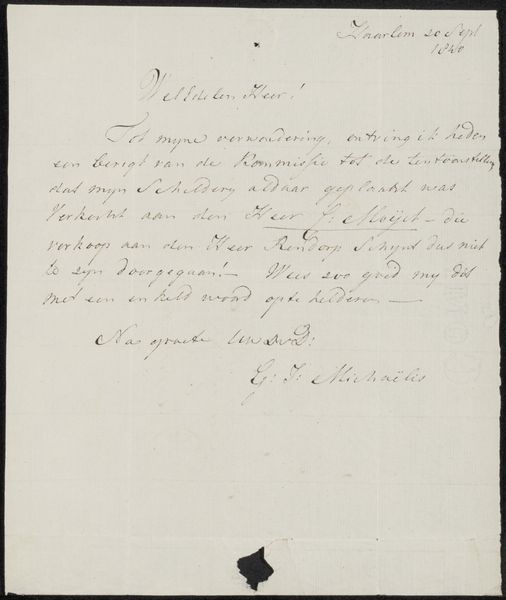 Haarlem 20 Sept
1840
Wel Edelen Heer!
Tot myne verwondering, ontving ik heden
een berigt van de Kommissie tot de tentoonstelling
dat myn Schildery aldaar geplaatst was
Verkocht aan den Heer J: Moijet – die
verkoop aan den Heer Rendorp Schynt dus niet
te zyn doorgegaan! – Wees zoo goed my dit
met een enkeld woord op te helderen —
Na groete UwDwD:
G: J: Michaëlis